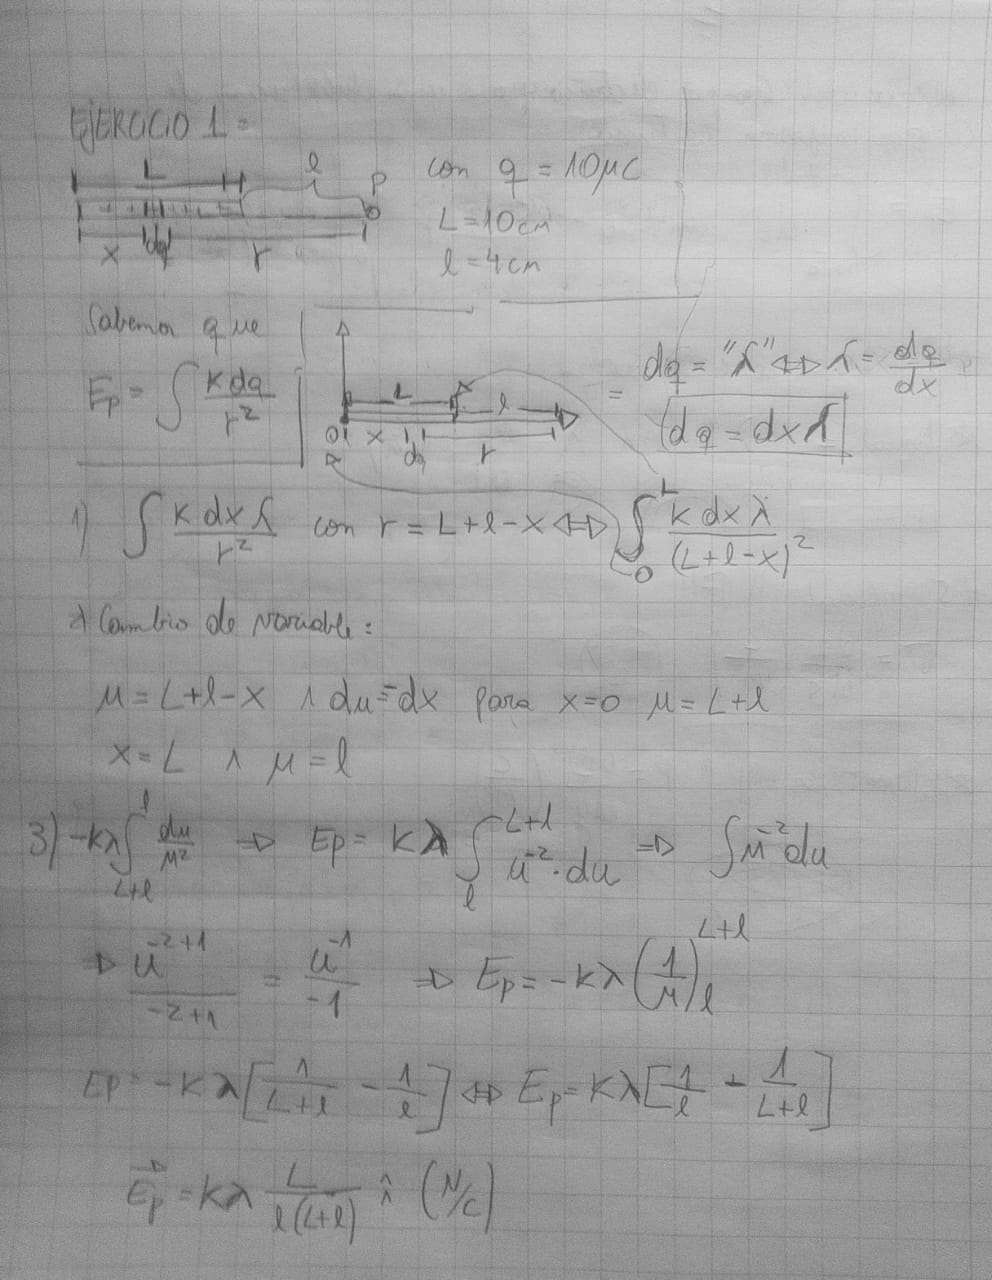 EJERCICIO 1 =
L l P
con q = 10μC
x dq r
L = 10cm
l = 4cm
Sabemos que
Ep = ∫ K dq / r²
L l
0 x dq r
= dq = "λ" ⇔ λ = dq / dx
dq = dx λ
1) ∫ K dx λ / r² con r = L+l-x ⇔ ∫₀ᴸ K dx λ / (L+l-x)²
2) Cambio de variable:
μ = L+l-x ∧ du = -dx para x=0 μ = L+l
x = L ∧ μ = l
3) -Kλ ∫_{L+l}^{l} du / μ² ⇒ Ep = Kλ ∫_{l}^{L+l} u⁻² · du ⇒ ∫ μ⁻² du
⇒ u⁻²⁺¹ / -2+1 = u⁻¹ / -1 ⇒ Ep = -Kλ (1/μ)_{l}^{L+l}
Ep = -Kλ [1/(L+l) - 1/l] ⇔ Ep = Kλ [1/l - 1/(L+l)]
E⃗p = Kλ L / l(L+l) î (N/C)